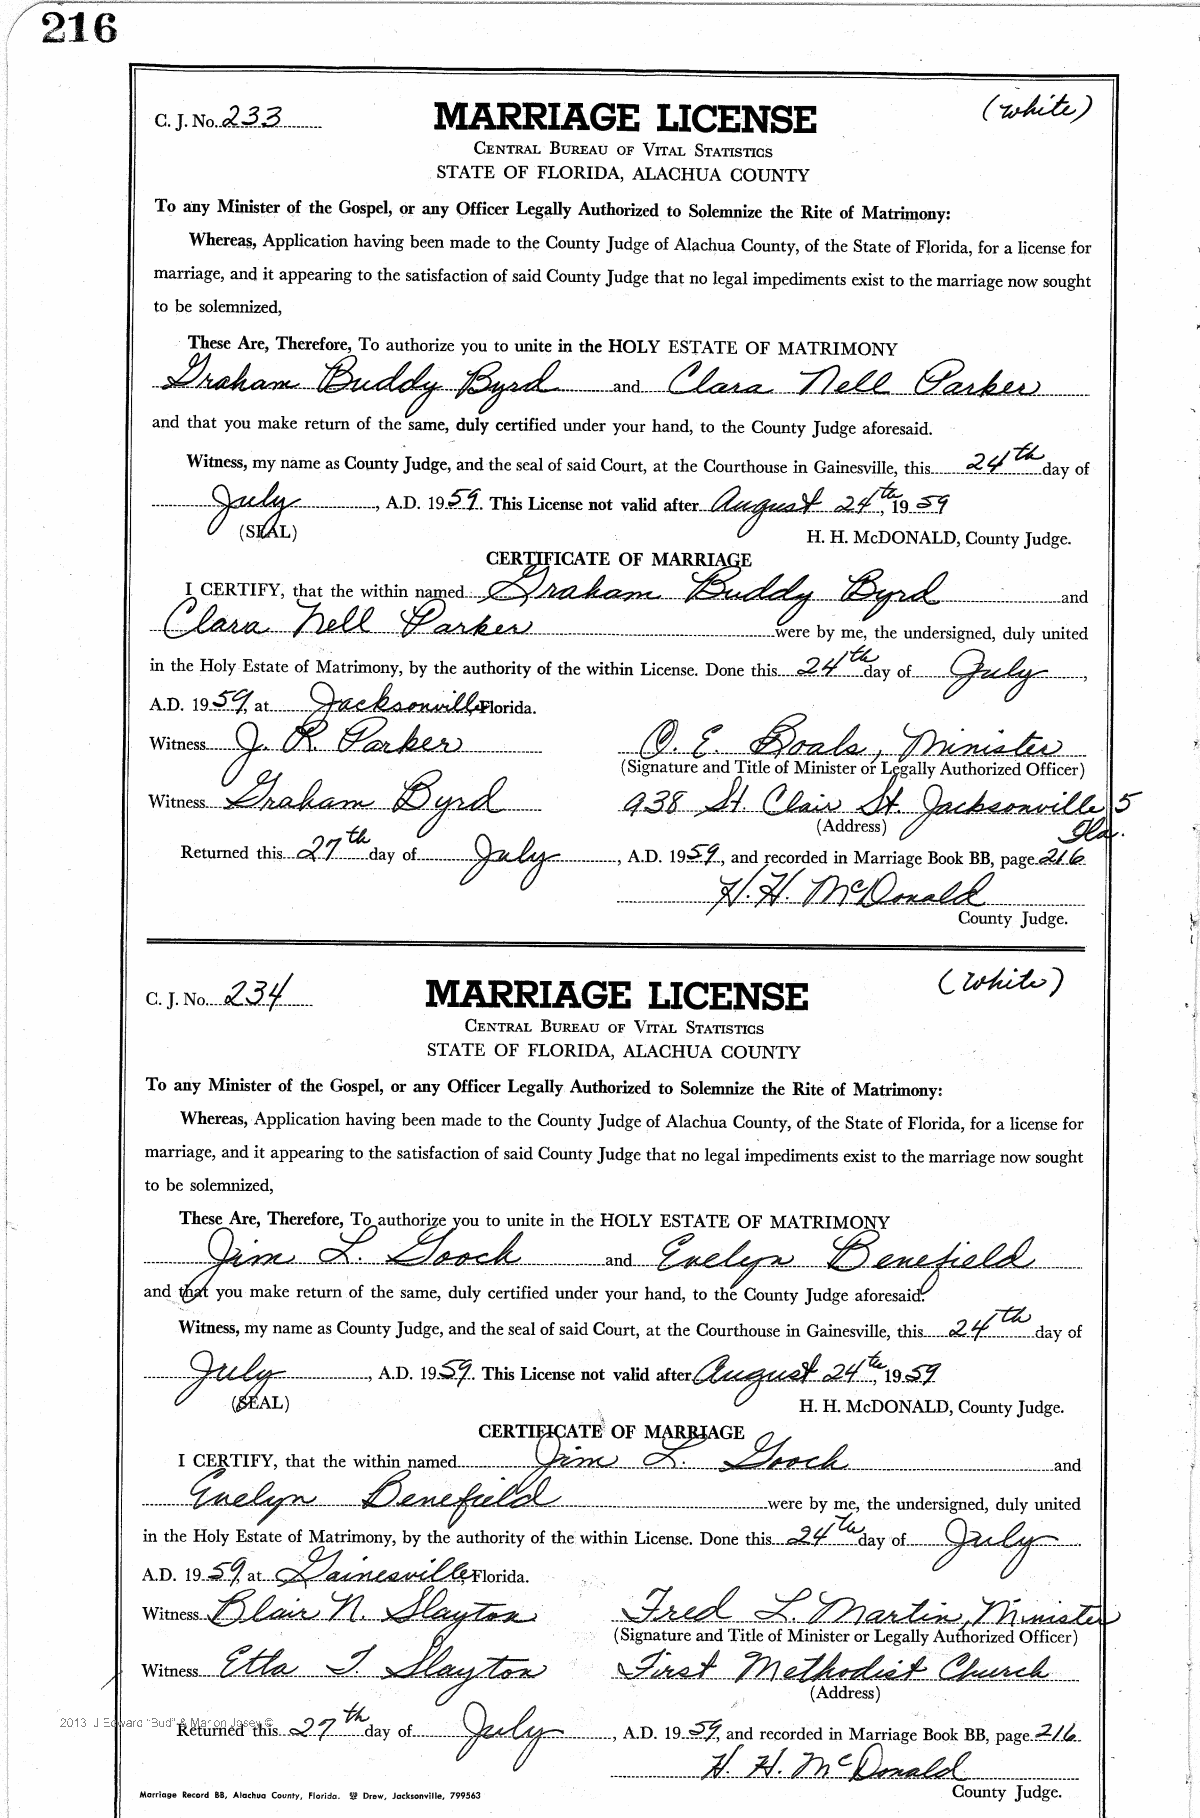 216
C. J. No. 233 MARRIAGE LICENSE (White)
CENTRAL BUREAU OF VITAL STATISTICS
STATE OF FLORIDA, ALACHUA COUNTY
To any Minister of the Gospel, or any Officer Legally Authorized to Solemnize the Rite of Matrimony:
Whereas, Application having been made to the County Judge of Alachua County, of the State of Florida, for a license for
marriage, and it appearing to the satisfaction of said County Judge that no legal impediments exist to the marriage now sought
to be solemnized,
These Are, Therefore, To authorize you to unite in the HOLY ESTATE OF MATRIMONY
Graham Buddy Byrd and Clara Nell Parker
and that you make return of the same, duly certified under your hand, to the County Judge aforesaid.
Witness, my name as County Judge, and the seal of said Court, at the Courthouse in Gainesville, this 24th day of
July, A.D. 1959. This License not valid after August 24th, 1959
(SEAL) H. H. McDONALD, County Judge.
CERTIFICATE OF MARRIAGE
I CERTIFY, that the within named Graham Buddy Byrd and
Clara Nell Parker were by me, the undersigned, duly united
in the Holy Estate of Matrimony, by the authority of the within License. Done this 24th day of July,
A.D. 1959, at Jacksonville, Florida.
Witness J. R. Parker O. E. Boals, Minister
(Signature and Title of Minister or Legally Authorized Officer)
Witness Graham Byrd 938 St. Clair St. Jacksonville 5
(Address) Fla.
Returned this 27th day of July, A.D. 1959, and recorded in Marriage Book BB, page 216
H. H. McDonald
County Judge.
C. J. No. 234 MARRIAGE LICENSE (White)
CENTRAL BUREAU OF VITAL STATISTICS
STATE OF FLORIDA, ALACHUA COUNTY
To any Minister of the Gospel, or any Officer Legally Authorized to Solemnize the Rite of Matrimony:
Whereas, Application having been made to the County Judge of Alachua County, of the State of Florida, for a license for
marriage, and it appearing to the satisfaction of said County Judge that no legal impediments exist to the marriage now sought
to be solemnized,
These Are, Therefore, To authorize you to unite in the HOLY ESTATE OF MATRIMONY
Jim L. Gooch and Evelyn Benefield
and that you make return of the same, duly certified under your hand, to the County Judge aforesaid.
Witness, my name as County Judge, and the seal of said Court, at the Courthouse in Gainesville, this 24th day of
July, A.D. 1959. This License not valid after August 24th, 1959
(SEAL) H. H. McDONALD, County Judge.
CERTIFICATE OF MARRIAGE
I CERTIFY, that the within named Jim L. Gooch and
Evelyn Benefield were by me, the undersigned, duly united
in the Holy Estate of Matrimony, by the authority of the within License. Done this 24th day of July
A.D. 1959, at Gainesville, Florida.
Witness Blair N. Slayton Fred L. Martin, Minister
(Signature and Title of Minister or Legally Authorized Officer)
Witness Etta T. Slayton First Methodist Church
(Address)
2013 J Edward "Bud" & Marion Jasey ©
Returned this 27th day of July, A.D. 1959, and recorded in Marriage Book BB, page 216
H. H. McDonald
County Judge.
Marriage Record BB, Alachua County, Florida. Drew, Jacksonville, 799563